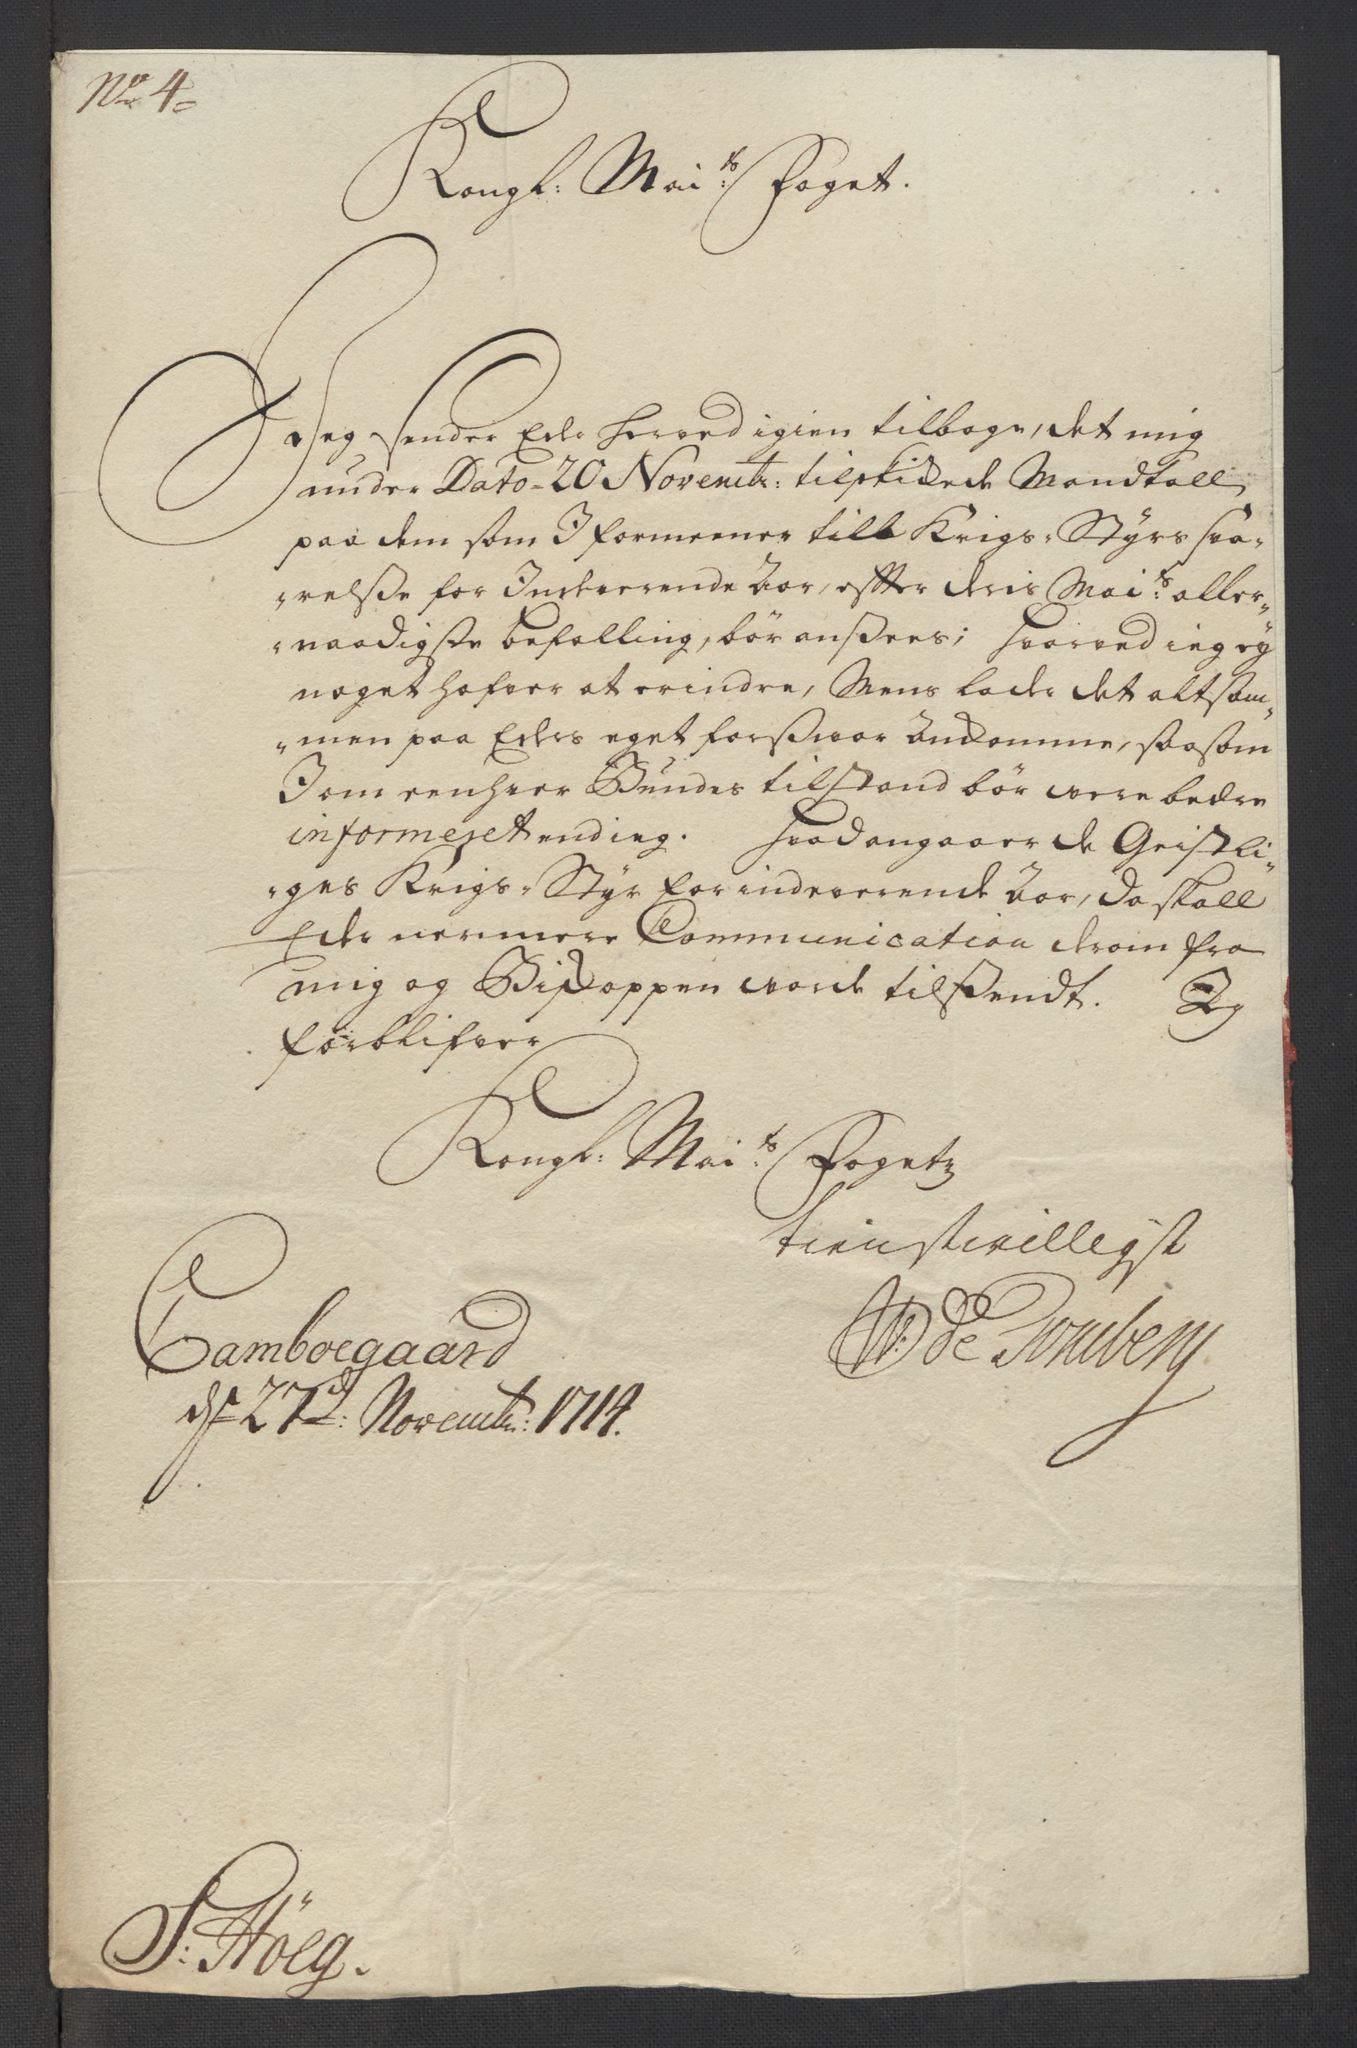 No 4
Kongl: Mai.ts Foget.
Jeg sender Eder herved igien tilbage, det mig
under Dato 20 Novembr: tilskickede Mandtall
paa dem som I formeener till Krigs-Styrs sva-
-relsse for Indeverende Aar, effter deris Mai.ts aller-
-naadigste befalling, bör ansees; hvorved ieg ey
noget hafver at erindre, Mens lader det altsam-
-men paa Eders eget forsvar ankomme, saasom
I om eenhver Bundes tilstand bör vere bedre
informeret end ieg. Hvad angaaer de Geistli-
-ges Krigs-Styr for indeverende Aar, da skall
Eder nermere Communication derom fra
mig og Biskoppen vorde tilsendt. Jeg
forblifver
Kongl: Mai.ts Fogets
tienstvilligst
W: de Tonsberg
Lamboegaard
d. 27d: Novembr: 1714.
S: Höeg.